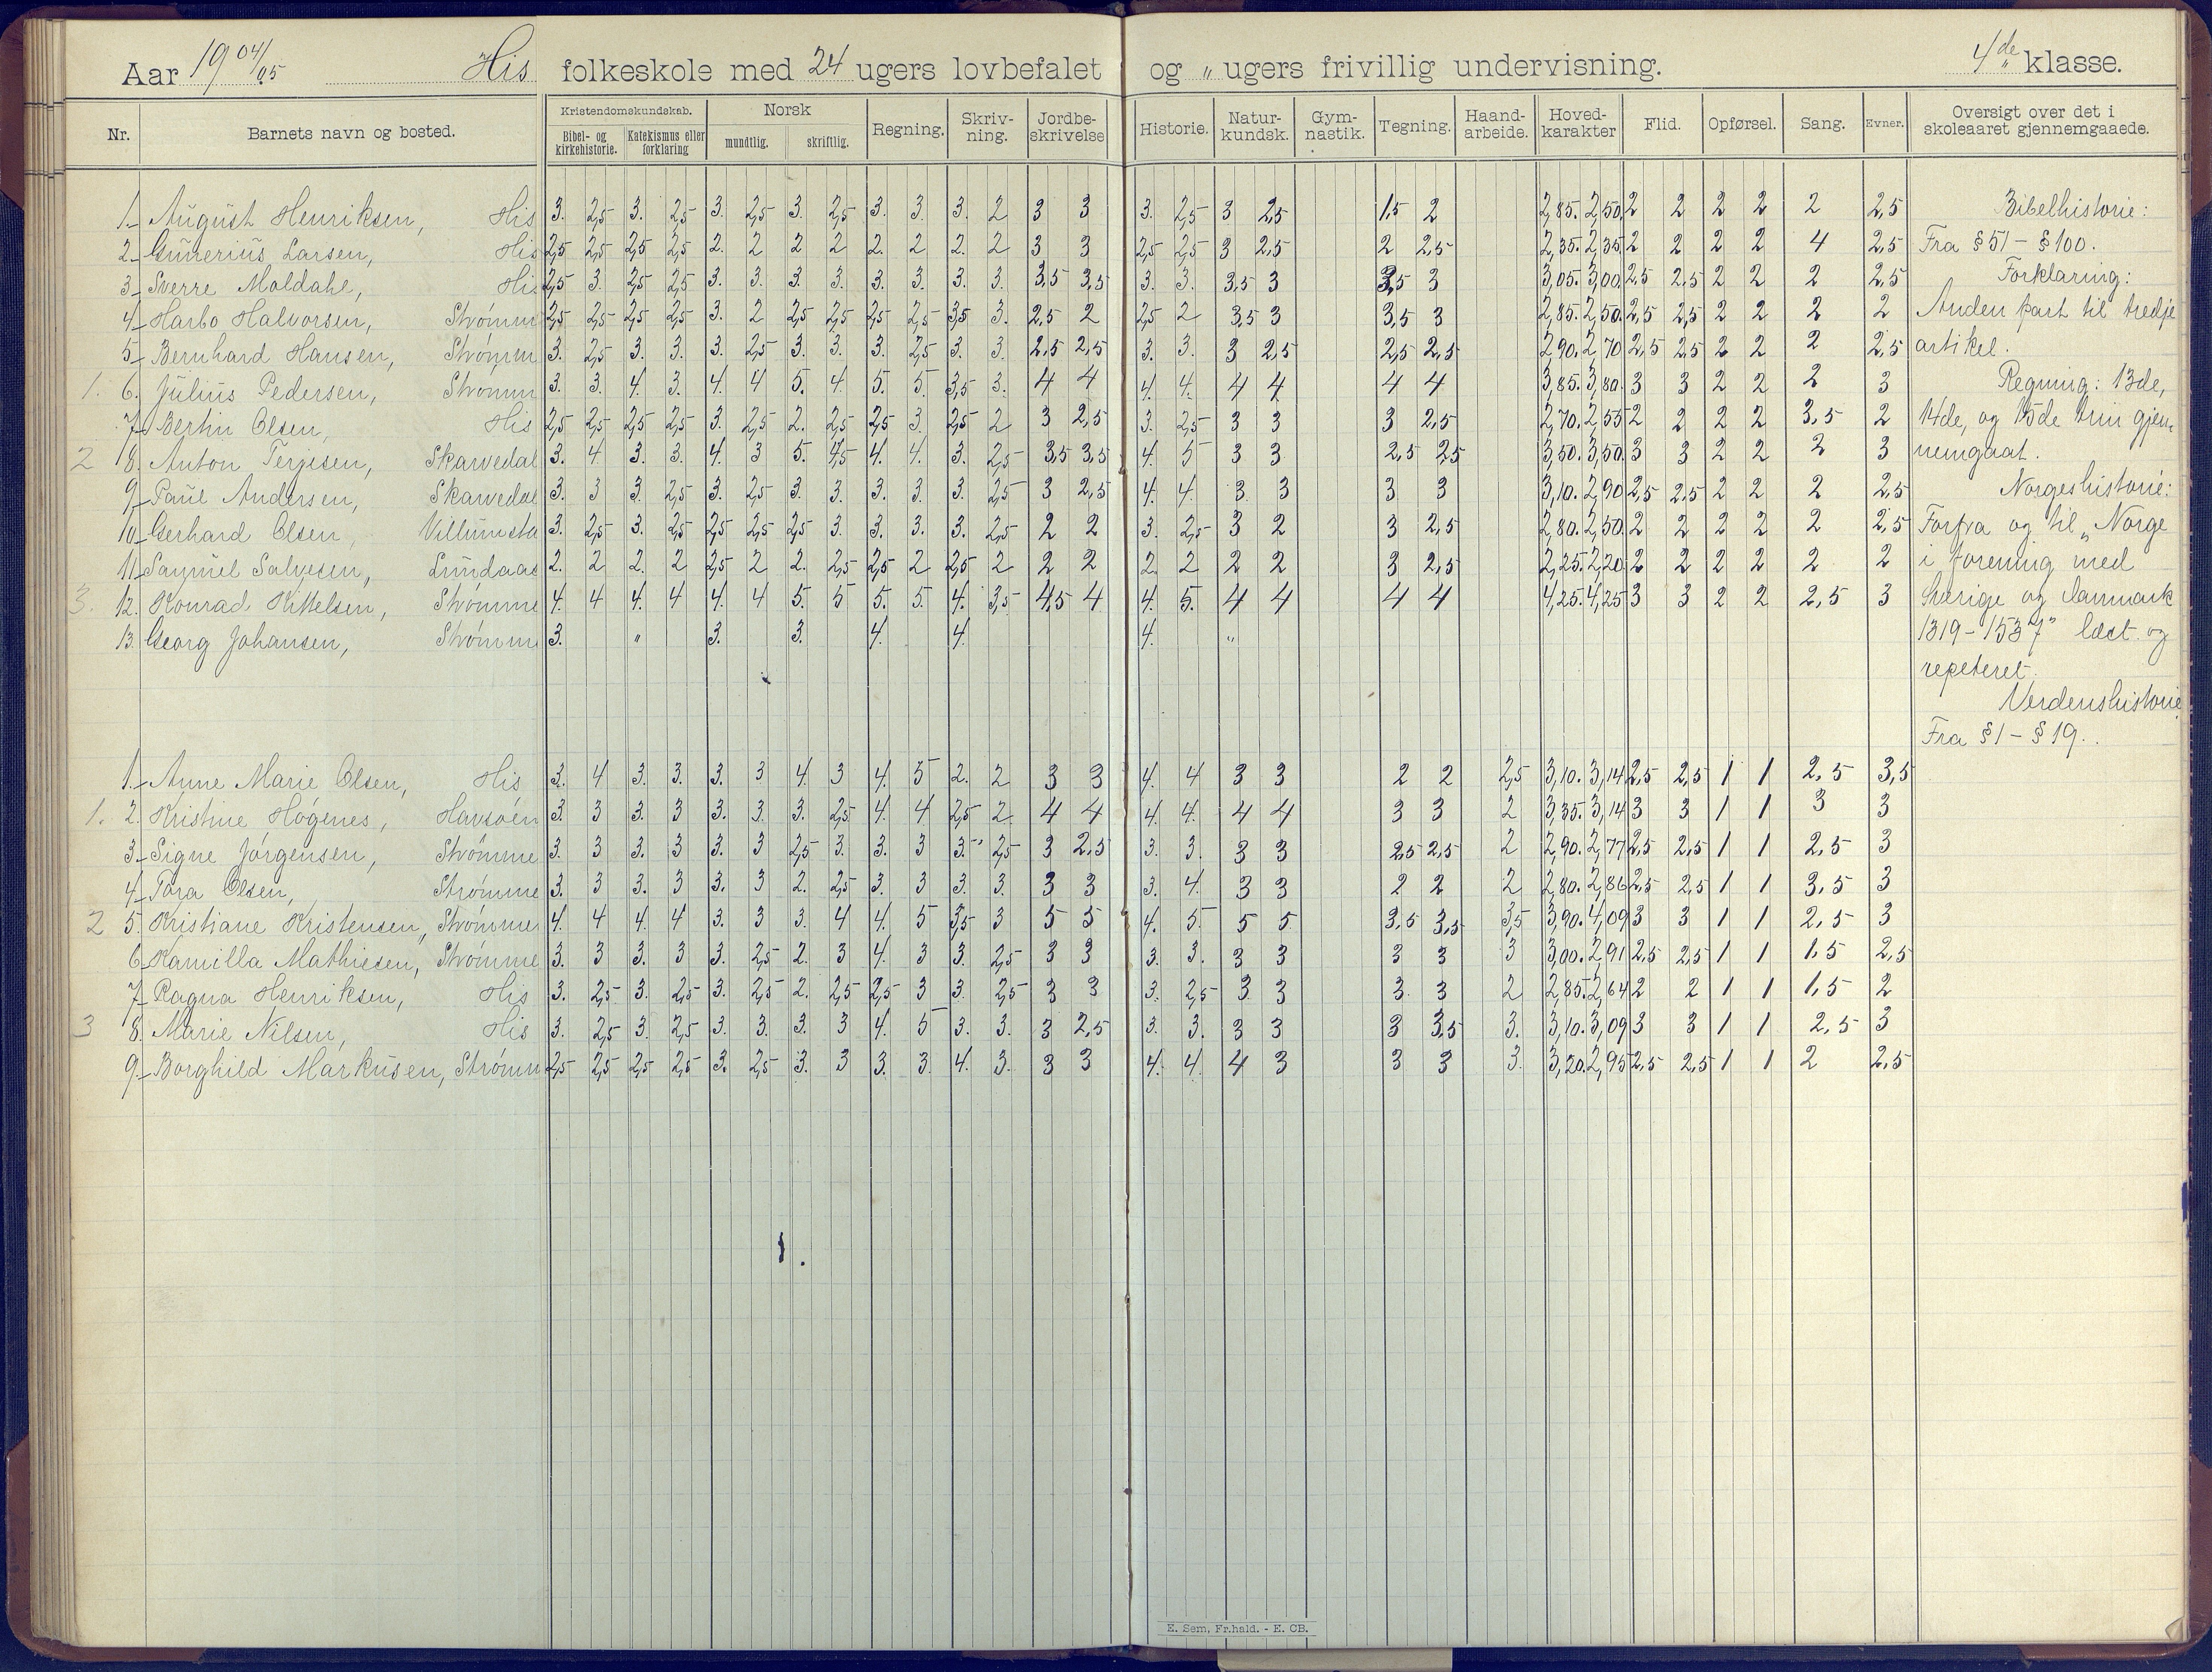 Aar 1904/05 His folkeskole med 24 ugers lovbefalet og „ ugers frivillig undervisning. 4de klasse.
Nr. Barnets navn og bosted. Kristendomskundskab. Bibel- og kirkehistorie. Katekismus eller forklaring Norsk mundtlig. skriftlig. Regning. Skriv-ning. Jordbe-skrivelse Historie. Natur-kundsk. Gym-nastik. Tegning. Haand-arbeide. Hoved-karakter Flid. Opførsel. Sang. Evner. Oversigt over det i skoleaaret gjennemgaaede.
1. August Henriksen, His 3. 2,5 3. 2,5 3. 2,5 3. 2,5 3. 3. 3. 2 3 3 3. 2,5 3 2,5 1,5 2 2,85. 2,50. 2 2 2 2 2 2,5 Bibelhistorie:
2. Gunerius Larsen, His 2,5 2,5 2,5 2,5 2. 2 2 2 2. 2 2. 2 3 3 2,5 2,5 3 2,5 2 2,5 2,35. 2,35. 2 2 2 2 4 2,5 Fra § 51 – § 100.
3. Sverre Moldahl, His 2,5 3. 2,5 2,5 3. 3. 3. 3. 3. 3. 3. 3. 3,5 3,5 3. 3. 3,5 3 3,5 3 3,05. 3,00. 2,5 2,5 2 2 2 2,5 Forklaring:
4. Harbo Halvorsen, Strømm 2,5 2,5 2,5 2,5 3. 2 2,5 2,5 2,5 2,5 3,5 3. 2,5 2 2,5 2 3,5 3 3,5 3 2,85. 2,50. 2,5 2,5 2 2 2 2 Anden part til tredje
5. Bernhard Hansen, Strømm 3. 2,5 3. 3. 3. 2,5 3. 3. 3. 2,5 3. 3. 2,5 2,5 3. 3. 3 2,5 2,5 2,5 2,90. 2,70 2,5 2,5 2 2 2 2,5 artikel.
1. 6. Julius Pedersen, Strømm 3. 3. 4. 3. 4. 4 5. 4. 5. 5 3,5 3. 4 4 4. 4. 4 4 4 4 3,85. 3,80. 3 3 2 2 2 3 Regning: 13de,
7. Bertin Olsen, His 2,5 2,5 2,5 2,5 3. 2,5 2. 2,5 2,5 3. 2,5 2 3 2,5 3. 2,5 3 3 3 2,5 2,70. 2,55 2 2 2 2 3,5 2 14de, og 15de trin gjen-
2 8. Anton Terjesen, Skarvedal 3. 4 3. 3. 4. 3 5. 4,5 4. 4. 3. 2,5 3,5 3,5 4. 5 3 3 2,5 2,5 3,50. 3,50. 3 3 2 2 2 3 nemgaat.
9. Paul Andersen, Skarvedal 3. 3 3. 2,5 3. 2,5 3. 3. 3. 3. 3. 2,5 3 2,5 4. 4. 3 3 3 3 3,10. 2,90 2,5 2,5 2 2 2 2,5 Norgeshistorie:
10. Gerhard Olsen, Villumsta 3. 2,5 3. 2,5 2,5 2,5 2,5 3. 3. 3. 3. 2,5 2 2 3. 2,5 3 2 3 2,5 2,80. 2,50. 2 2 2 2 2 2,5 Forfra og til „Norge
11. Samuel Salvesen, Lundaas 2. 2 2. 2 2,5 2 2. 2,5 2,5 2 2,5 2 2 2 2. 2 2 2 3 2,5 2,25. 2,20. 2 2 2 2 2 2 i forening med
3. 12. Konrad Kittelsen, Strømme 4. 4 4. 4 4. 4 5. 5 5. 5. 4. 3,5 4,5 4 4. 5. 4 4 4 4 4,25. 4,25 3 3 2 2 2,5 3 Sverige og Danmark
13. Georg Johansen, Strømm 3. „ 3. 3. 4. 4. 4. „ 1319 – 1537" læst og
repeteret.
Verdenshistorie
Fra § 1 – § 19.
1. Anne Marie Olsen, His 3. 4 3. 3. 3. 3 4. 3 4. 5 2. 2 3 3 4. 4 3 3 2 2 2,5 3,10. 3,14 2,5 2,5 1 1 2,5 3,5
1. 2. Kristine Høgenes, Havsøen 3. 3 3. 3 3. 3. 3. 2,5 4. 4 2,5 2 4 4 4. 4. 4 4 3 3 2 3,35. 3,14 3 3 1 1 3 3
3. Signe Jørgensen, Strømme 3. 3 3. 3 3. 3 2,5 3. 3. 3 3. 2,5 3 2,5 3. 3. 3 3 2,5 2,5 2 2,90. 2,77 2,5 2,5 1 1 2,5 3
4. Tora Olsen, Strømme 3. 3 3. 3 3. 3 2. 2,5 3. 3 3. 3. 3 3 3. 4. 3 3 2 2 2 2,80. 2,86 2,5 2,5 1 1 3,5 3
2 5. Kristiane Kristensen, Strømme 4. 4 4. 4 3. 3 3. 4 4. 5 3,5 3 5 5 4. 5 5 5 3,5 3,5 3,5 3,90. 4,09 3 3 1 1 2,5 3
6. Kamilla Mathiesen, Strømme 3. 3 3. 3 3. 2,5 2. 3 4. 3 3. 2,5 3 3 3. 3. 3 3 3 3 3 3,00. 2,91 2,5 2,5 1 1 1,5 2,5
7. Ragna Henriksen, His 3. 2,5 3. 2,5 3. 2,5 2. 2,5 2,5 3 3. 2,5 3 3 3. 2,5 3 3 3 3 2 2,85. 2,64 2 2 1 1 1,5 2
3 8. Marie Nilsen, His 3. 2,5 3. 2,5 3. 3. 3. 3 4. 5 3. 3. 3 2,5 3. 3. 3 3 3 3,5 3. 3,10. 3,09 3 3 1 1 2,5 3
9. Borghild Markusen, Strømm 2,5 2,5 2,5 2,5 3. 2,5 3. 3 3. 3. 4. 3. 3 3 4. 4. 4 3 3 3 3. 3,20. 2,95 2,5 2,5 1 1 2 2,5
E. Sem, Fr.hald. - E. CB.